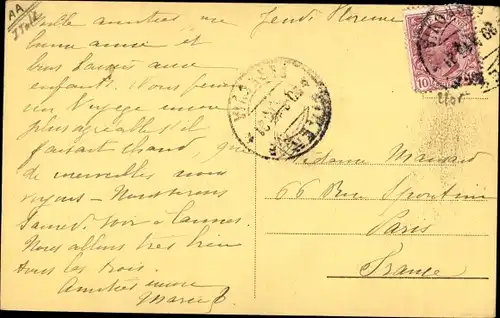 AA
Ital
Jeudi Florence
Mille amitiés ma
bonne amie et
bons baisers aux
enfants. Nous faisons
un voyage encore
plus agréable s'il
faisait chaud, que
de merveilles nous
voyons - Nous serons
Samedi soir à Cannes.
Nous allons très bien
tous les trois.
Amitiés encore
Marie
10
FIRENZE
Madame Massard
66 Rue Spontini
Paris
France